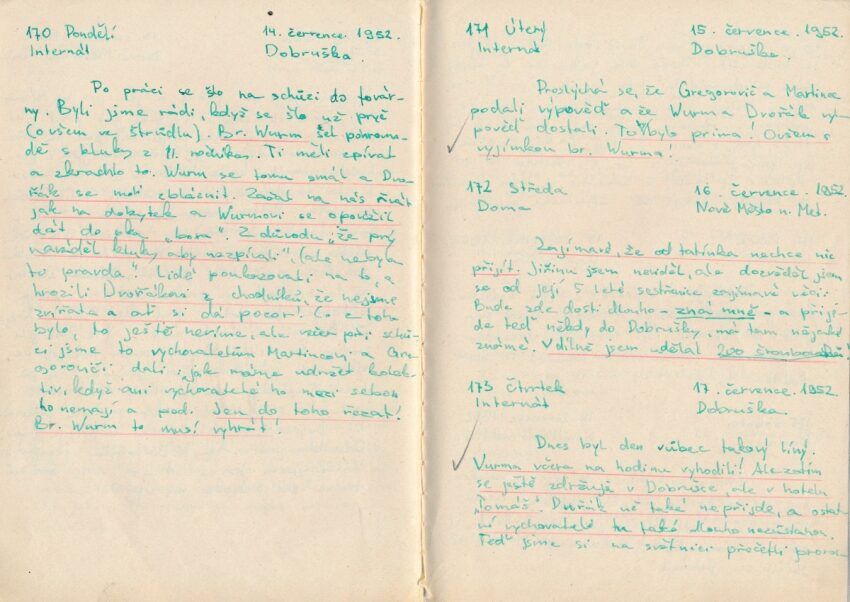 170 Pondělí 14. července. 1952.
Internát Dobruška.
Po práci se šlo na schůzi do továr-
ny. Byli jsme rádi, když se šlo už pryč
(ovšem ve štrúdlu). Br. Wurm šel pohromа-
dě s kluky z 11. ročníku. Ti měli zpívat
a zkrachlo to. Wurm se tomu smál a Dvo-
řák se mohl zbláznit. Začal na nás řvát
jak na dobytek a Wurmovi se opovážil
dát do oka „bora". Z důvodu „že prý
naváděl kluky aby nezpívali", (ale nebyla
to pravda". Lidé poukazovali na to, a
hrozili Dvořákovi z chodníků, že nejsme
zvířata a ať si dá pozor! Co z toho
bylo, to ještě nevíme, ale večer při schů-
zi jsme to vychovatelům Martincovi a Gre-
goroviči dali, jak možno udržet kolek-
tiv, když ani vychovatelé ho mezi sebou
ho nemají a pod. Jen do toho řezat!
Br. Wurm to musí vyhrát!
171 Úterý 15. července. 1952.
Internát Dobruška.
Proslýchá se, že Gregorovič a Martinec
podali výpověď a že Wurm a Dvořák vý-
pověď dostali. To by bylo prima! Ovšem s
vyjímkou br. Wurma!
172 Středa 16. července. 1952.
Doma Nové Město n. Met.
Zajímavé, že od tatínka nechce nic
přijít. Jiřinu jsem neviděl, ale dozvěděl jsem
se od její 5 leté sestřenice zajímavé věci.
Bude zde dosti dlouho - zná mně - a přij-
de teď někdy do Dobrušky, má tam nějaké
známé. V dílně jsem udělal 200 šroubováků!
173 Čtvrtek 17. července. 1952.
Internát Dobruška.
Dnes byl den vůbec takový líný.
Vurma včera na hodinu vyhodili! Ale zatím
se ještě zdržuje v Dobrušce, ale v hotelu
„Tomáš". Dvořák už také nepřijde, a ostat-
ní vychovatelé tu také dlouho nezůstanou.
Teď jsme si na světnici přečetli